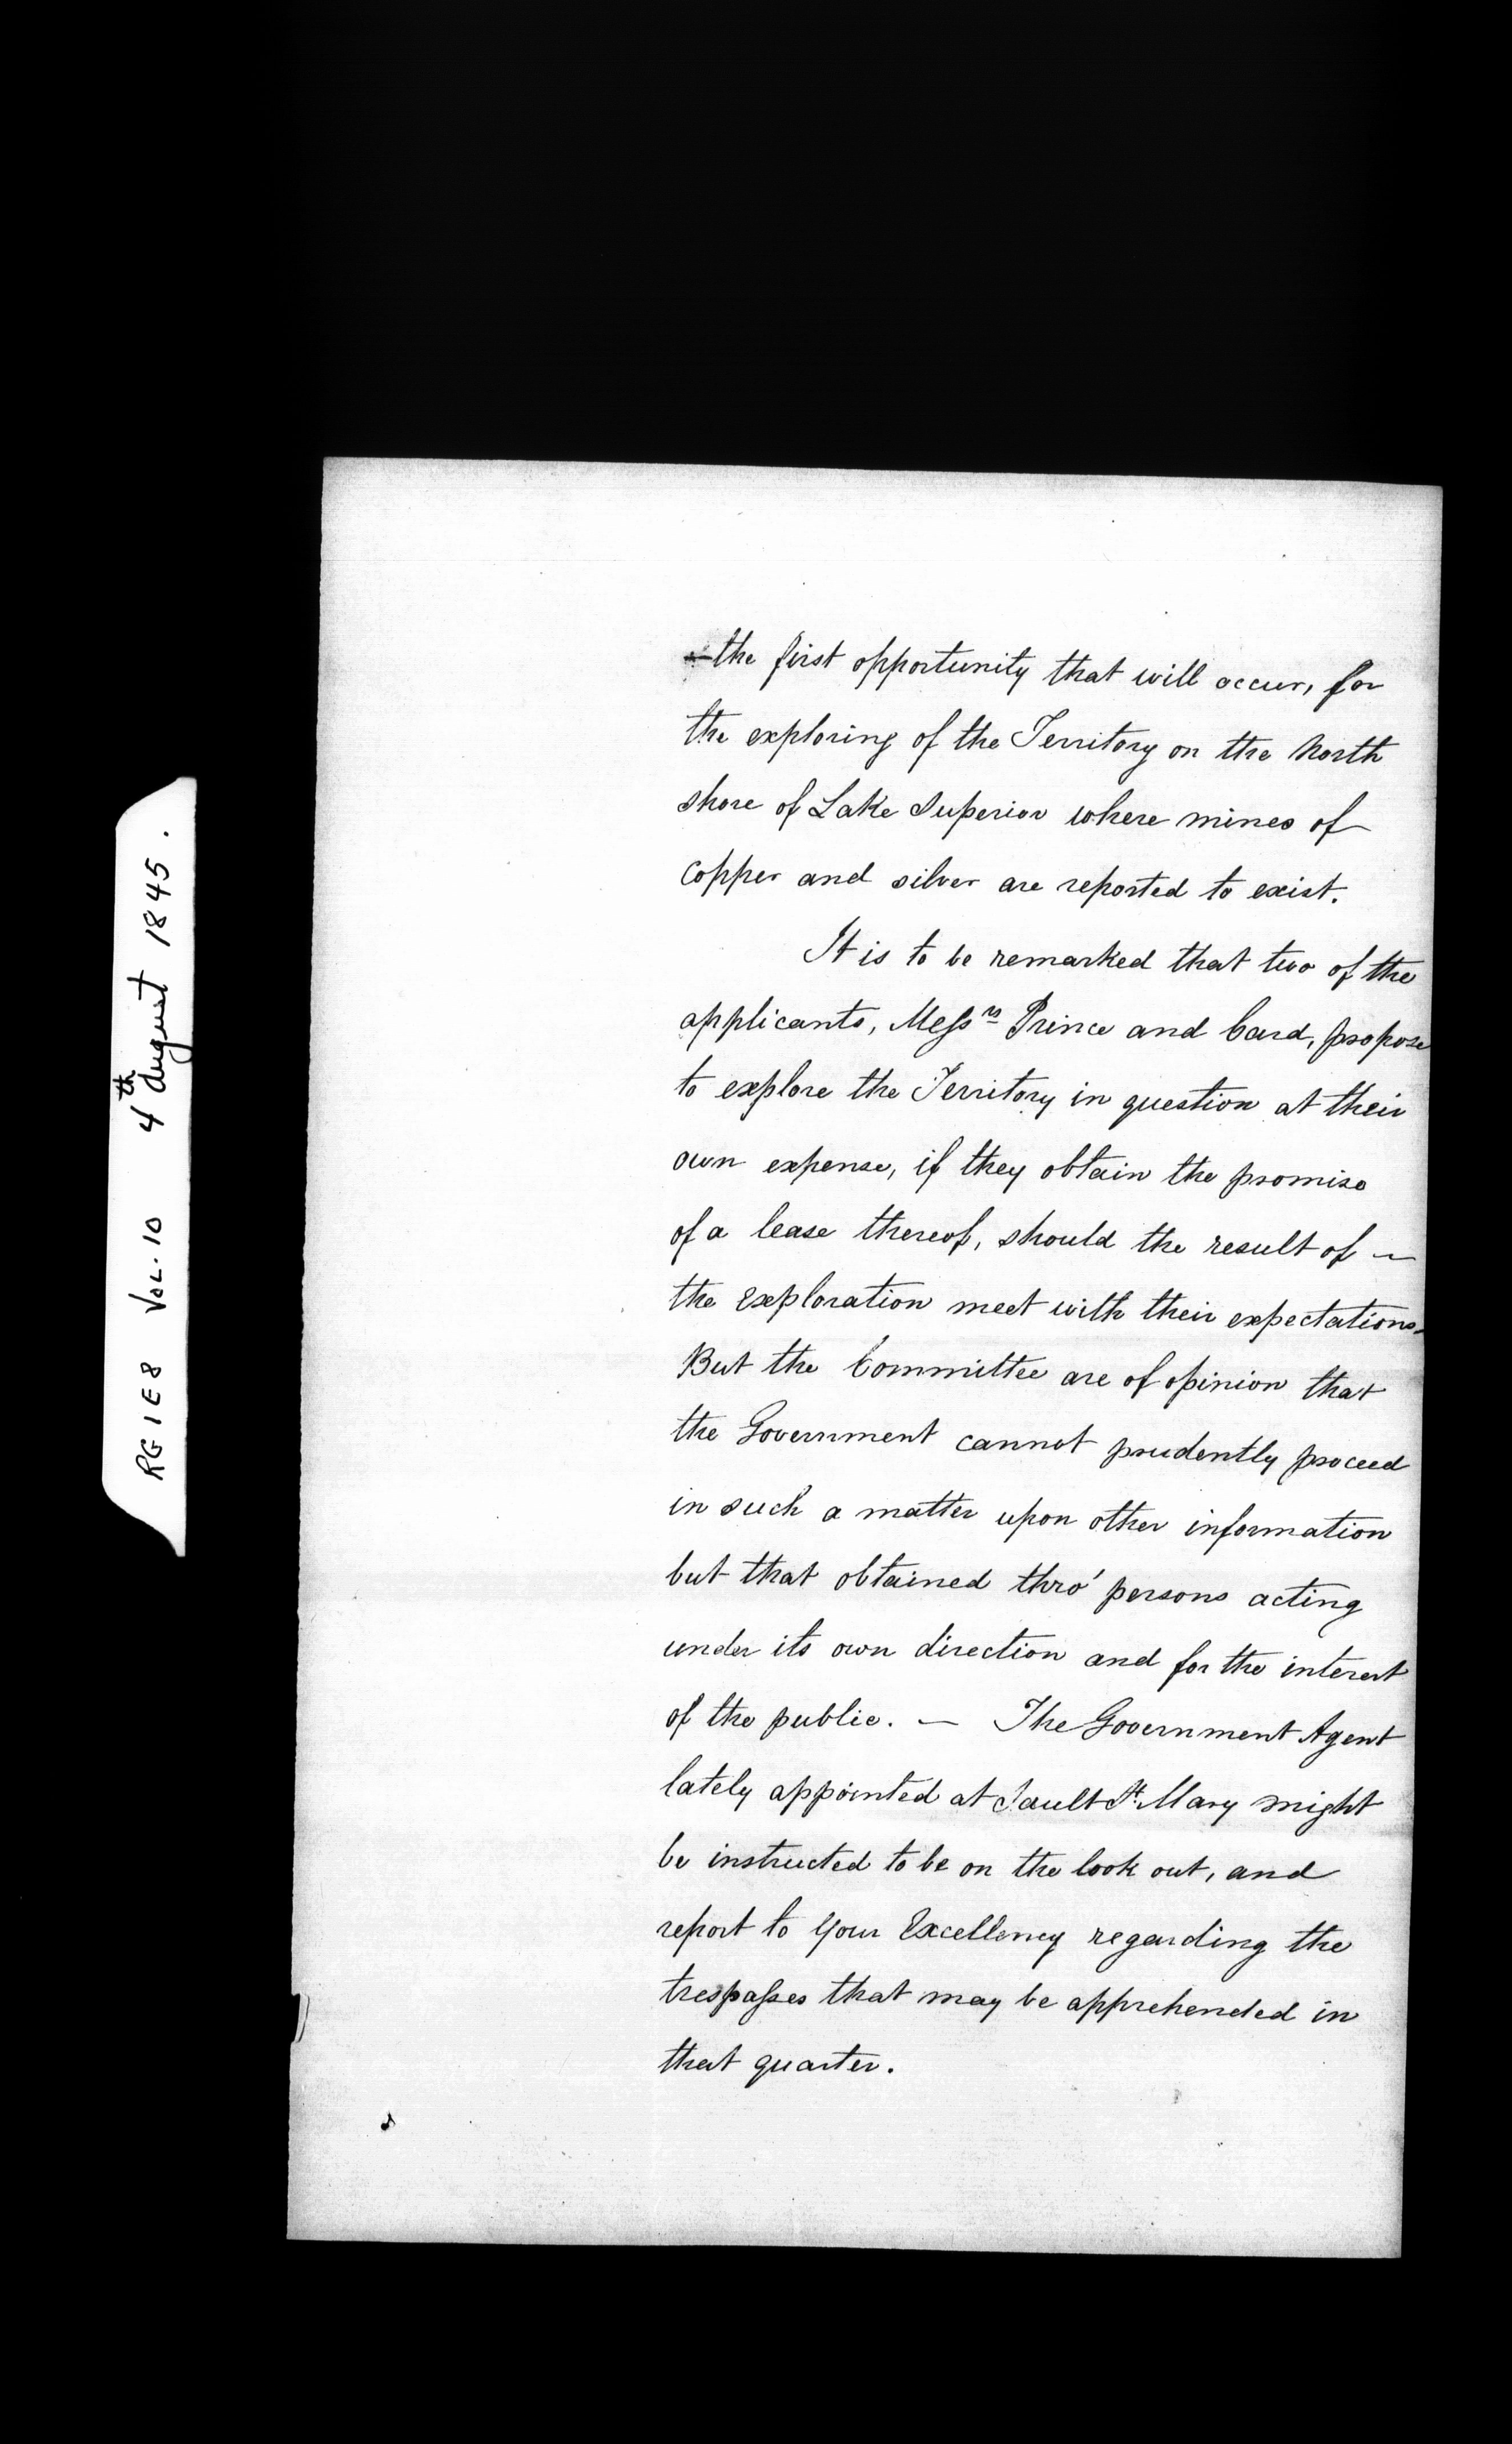 RG 1 E 8 VOL. 10 4th August 1845.
the first opportunity that will occur, for
the exploring of the Territory on the North
shore of Lake Superior where mines of
copper and silver are reported to exist.
It is to be remarked that two of the
applicants, Messrs Prince and Card, propose
to explore the Territory in question at their
own expense, if they obtain the promise
of a lease thereof, should the result of —
the exploration meet with their expectations.
But the Committee are of opinion that
the Government cannot prudently proceed
in such a matter upon other information
but that obtained thro' persons acting
under its own direction and for the interest
of the public. — The Government Agent
lately appointed at Sault St. Mary might
be instructed to be on the look out, and
report to Your Excellency regarding the
trespasses that may be apprehended in
that quarter.